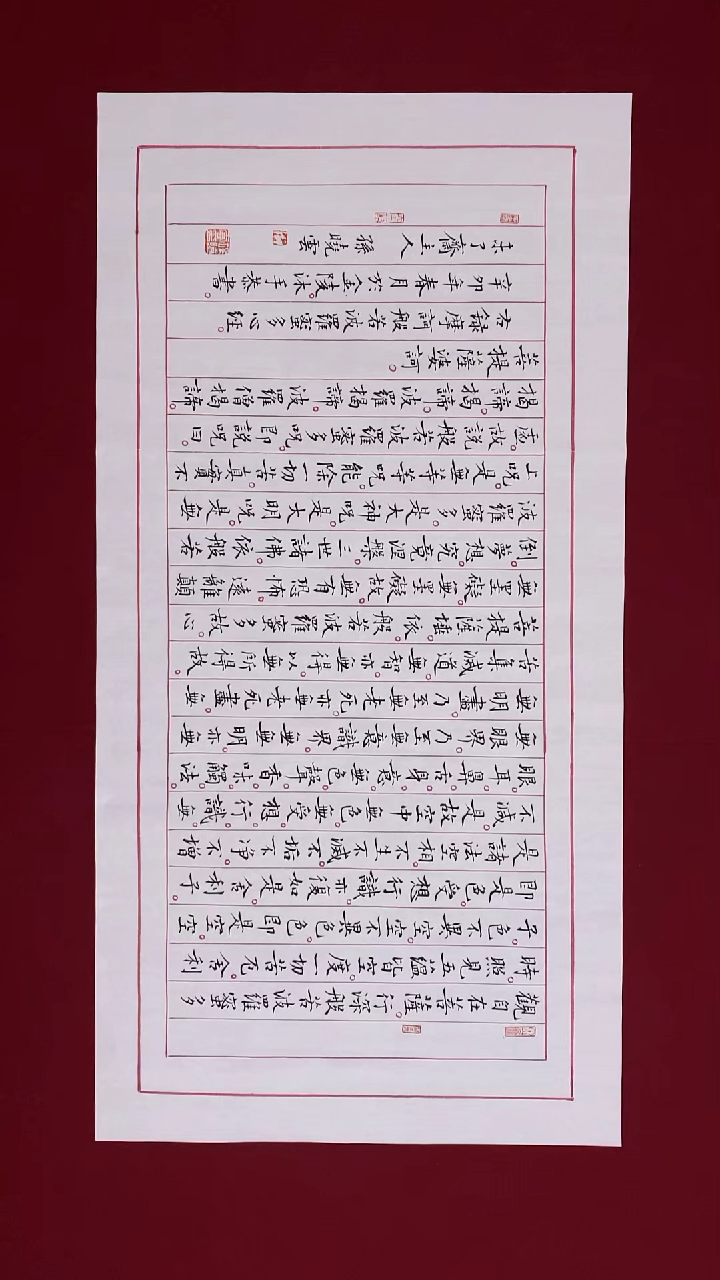 觀自在菩薩。行深般若波羅蜜多
時。照見五蘊皆空。度一切苦厄。舍利
子。色不異空。空不異色。色即是空。空
即是色。受想行識。亦復如是。舍利子。
是諸法空相。不生不滅。不垢不淨。不增
不減。是故空中無色。無受想行識。無
眼耳鼻舌身意。無色聲香味觸法。
無眼界。乃至無意識界。無無明。亦無
無明盡。乃至無老死。亦無老死盡。無
苦集滅道。無智。亦無得。以無所得故。
菩提薩埵。依般若波羅蜜多故。心
無罣礙。無罣礙故。無有恐怖。遠離顛
倒夢想。究竟涅槃。三世諸佛。依般若
波羅蜜多。是大神咒。是大明咒。是無
上咒。是無等等咒。能除一切苦。真實不
虛。故說般若波羅蜜多咒。即說咒曰。
揭諦揭諦。波羅揭諦。波羅僧揭諦。
菩提薩婆訶。
右錄摩訶般若波羅蜜多心經。
辛卯年春月於金陵沐手恭書。
未了齋主人孫曉雲